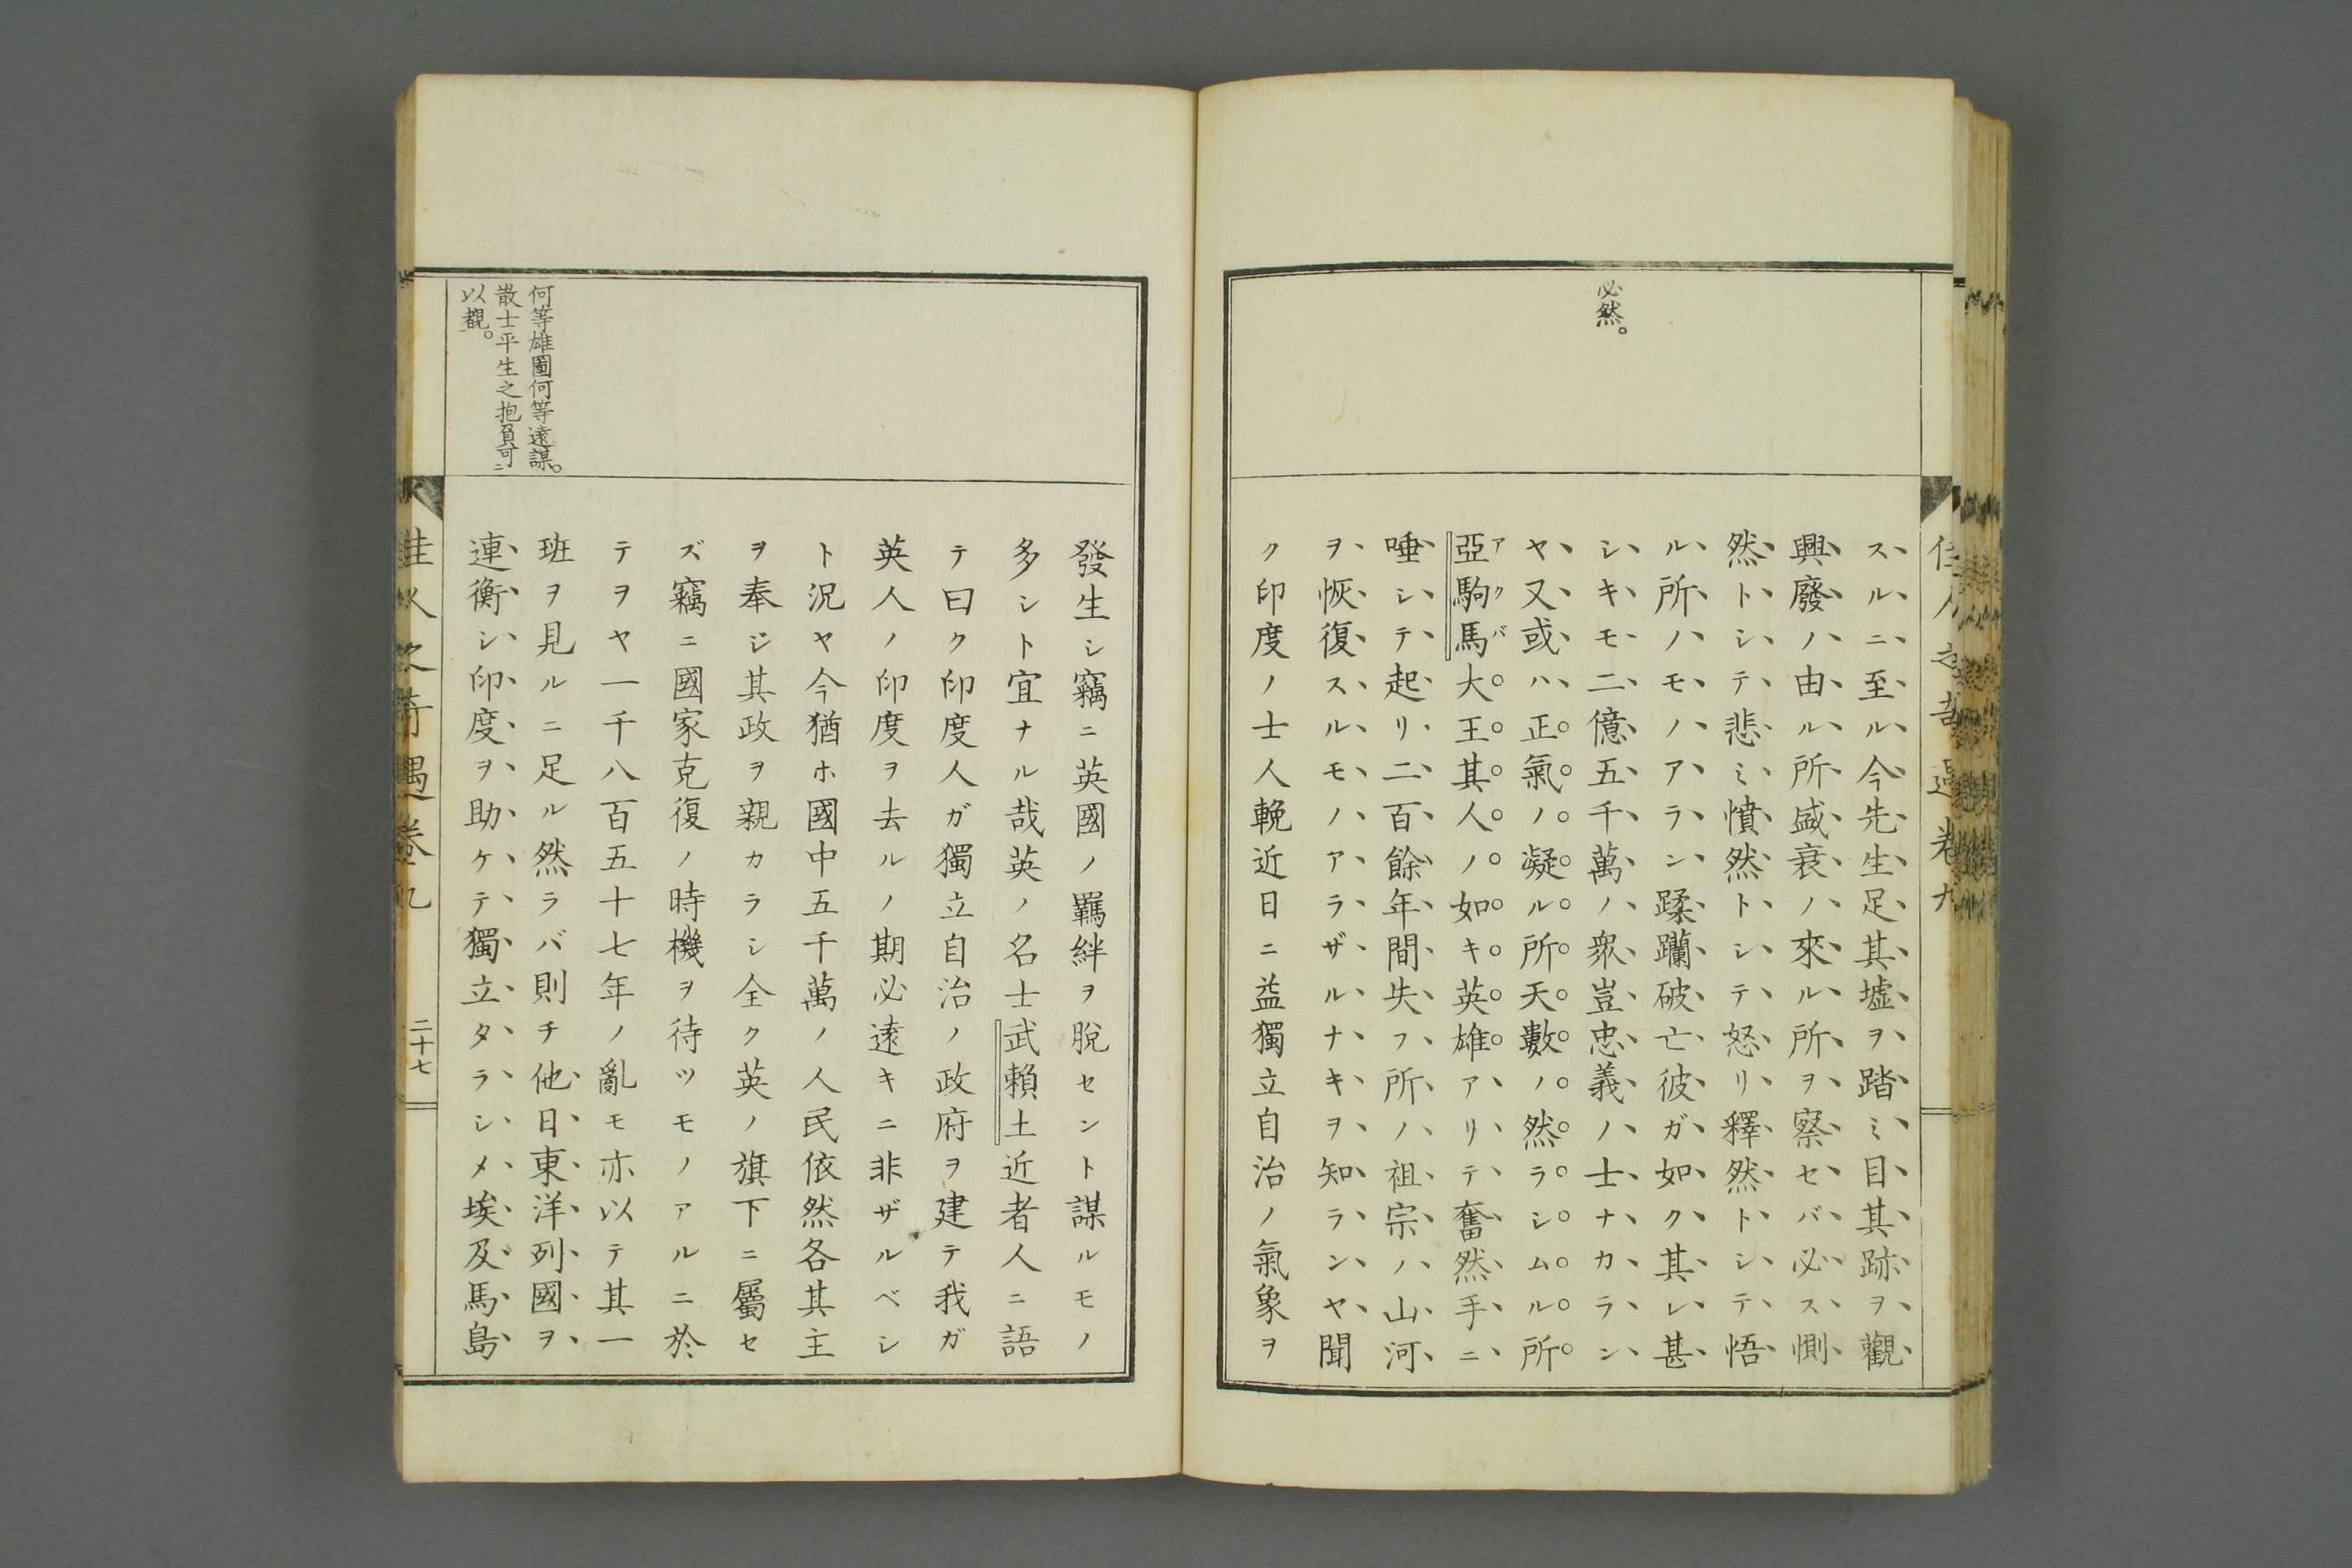 佳人之奇遇卷九
必然。
スルニ至ル今先生足其墟ヲ踏ミ目其跡ヲ觀
興廢ノ由ル所盛衰ノ來ル所ヲ察セバ必ス惻
然トシテ悲ミ憤然トシテ怒リ釋然トシテ悟
ル所ノモノアラン蹂躙破亡彼ガ如ク其レ甚
シキモ二億五千萬ノ衆豈忠義ノ士ナカラン
ヤ又或ハ正氣ノ凝ル所天數ノ然ラシムル所
亞駒馬大王其人ノ如キ英雄アリテ奮然手ニ
アクバ
唾シテ起リ二百餘年間失フ所ノ祖宗ノ山河
ヲ恢復スルモノアラザルナキヲ知ランヤ聞
ク印度ノ士人輓近日ニ益獨立自治ノ氣象ヲ
發生シ竊ニ英國ノ羈絆ヲ脫セント謀ルモノ
多シト宜ナル哉英ノ名士武賴土近者人ニ語
テ曰ク印度人ガ獨立自治ノ政府ヲ建テ我ガ
英人ノ印度ヲ去ルノ期必遠キニ非ザルベシ
ト況ヤ今猶ホ國中五千萬ノ人民依然各其主
ヲ奉ジ其政ヲ親カラシ全ク英ノ旗下ニ屬セ
ズ竊ニ國家克復ノ時機ヲ待ツモノアルニ於
テヲヤ一千八百五十七年ノ亂モ亦以テ其一
班ヲ見ルニ足ル然ラバ則チ他日東洋列國ヲ
連衡シ印度ヲ助ケテ獨立タラシメ埃及馬島
何等雄圖何等遠謀。
散士平生之抱負可ニ
以觀。
佳人之奇遇卷九
二十七